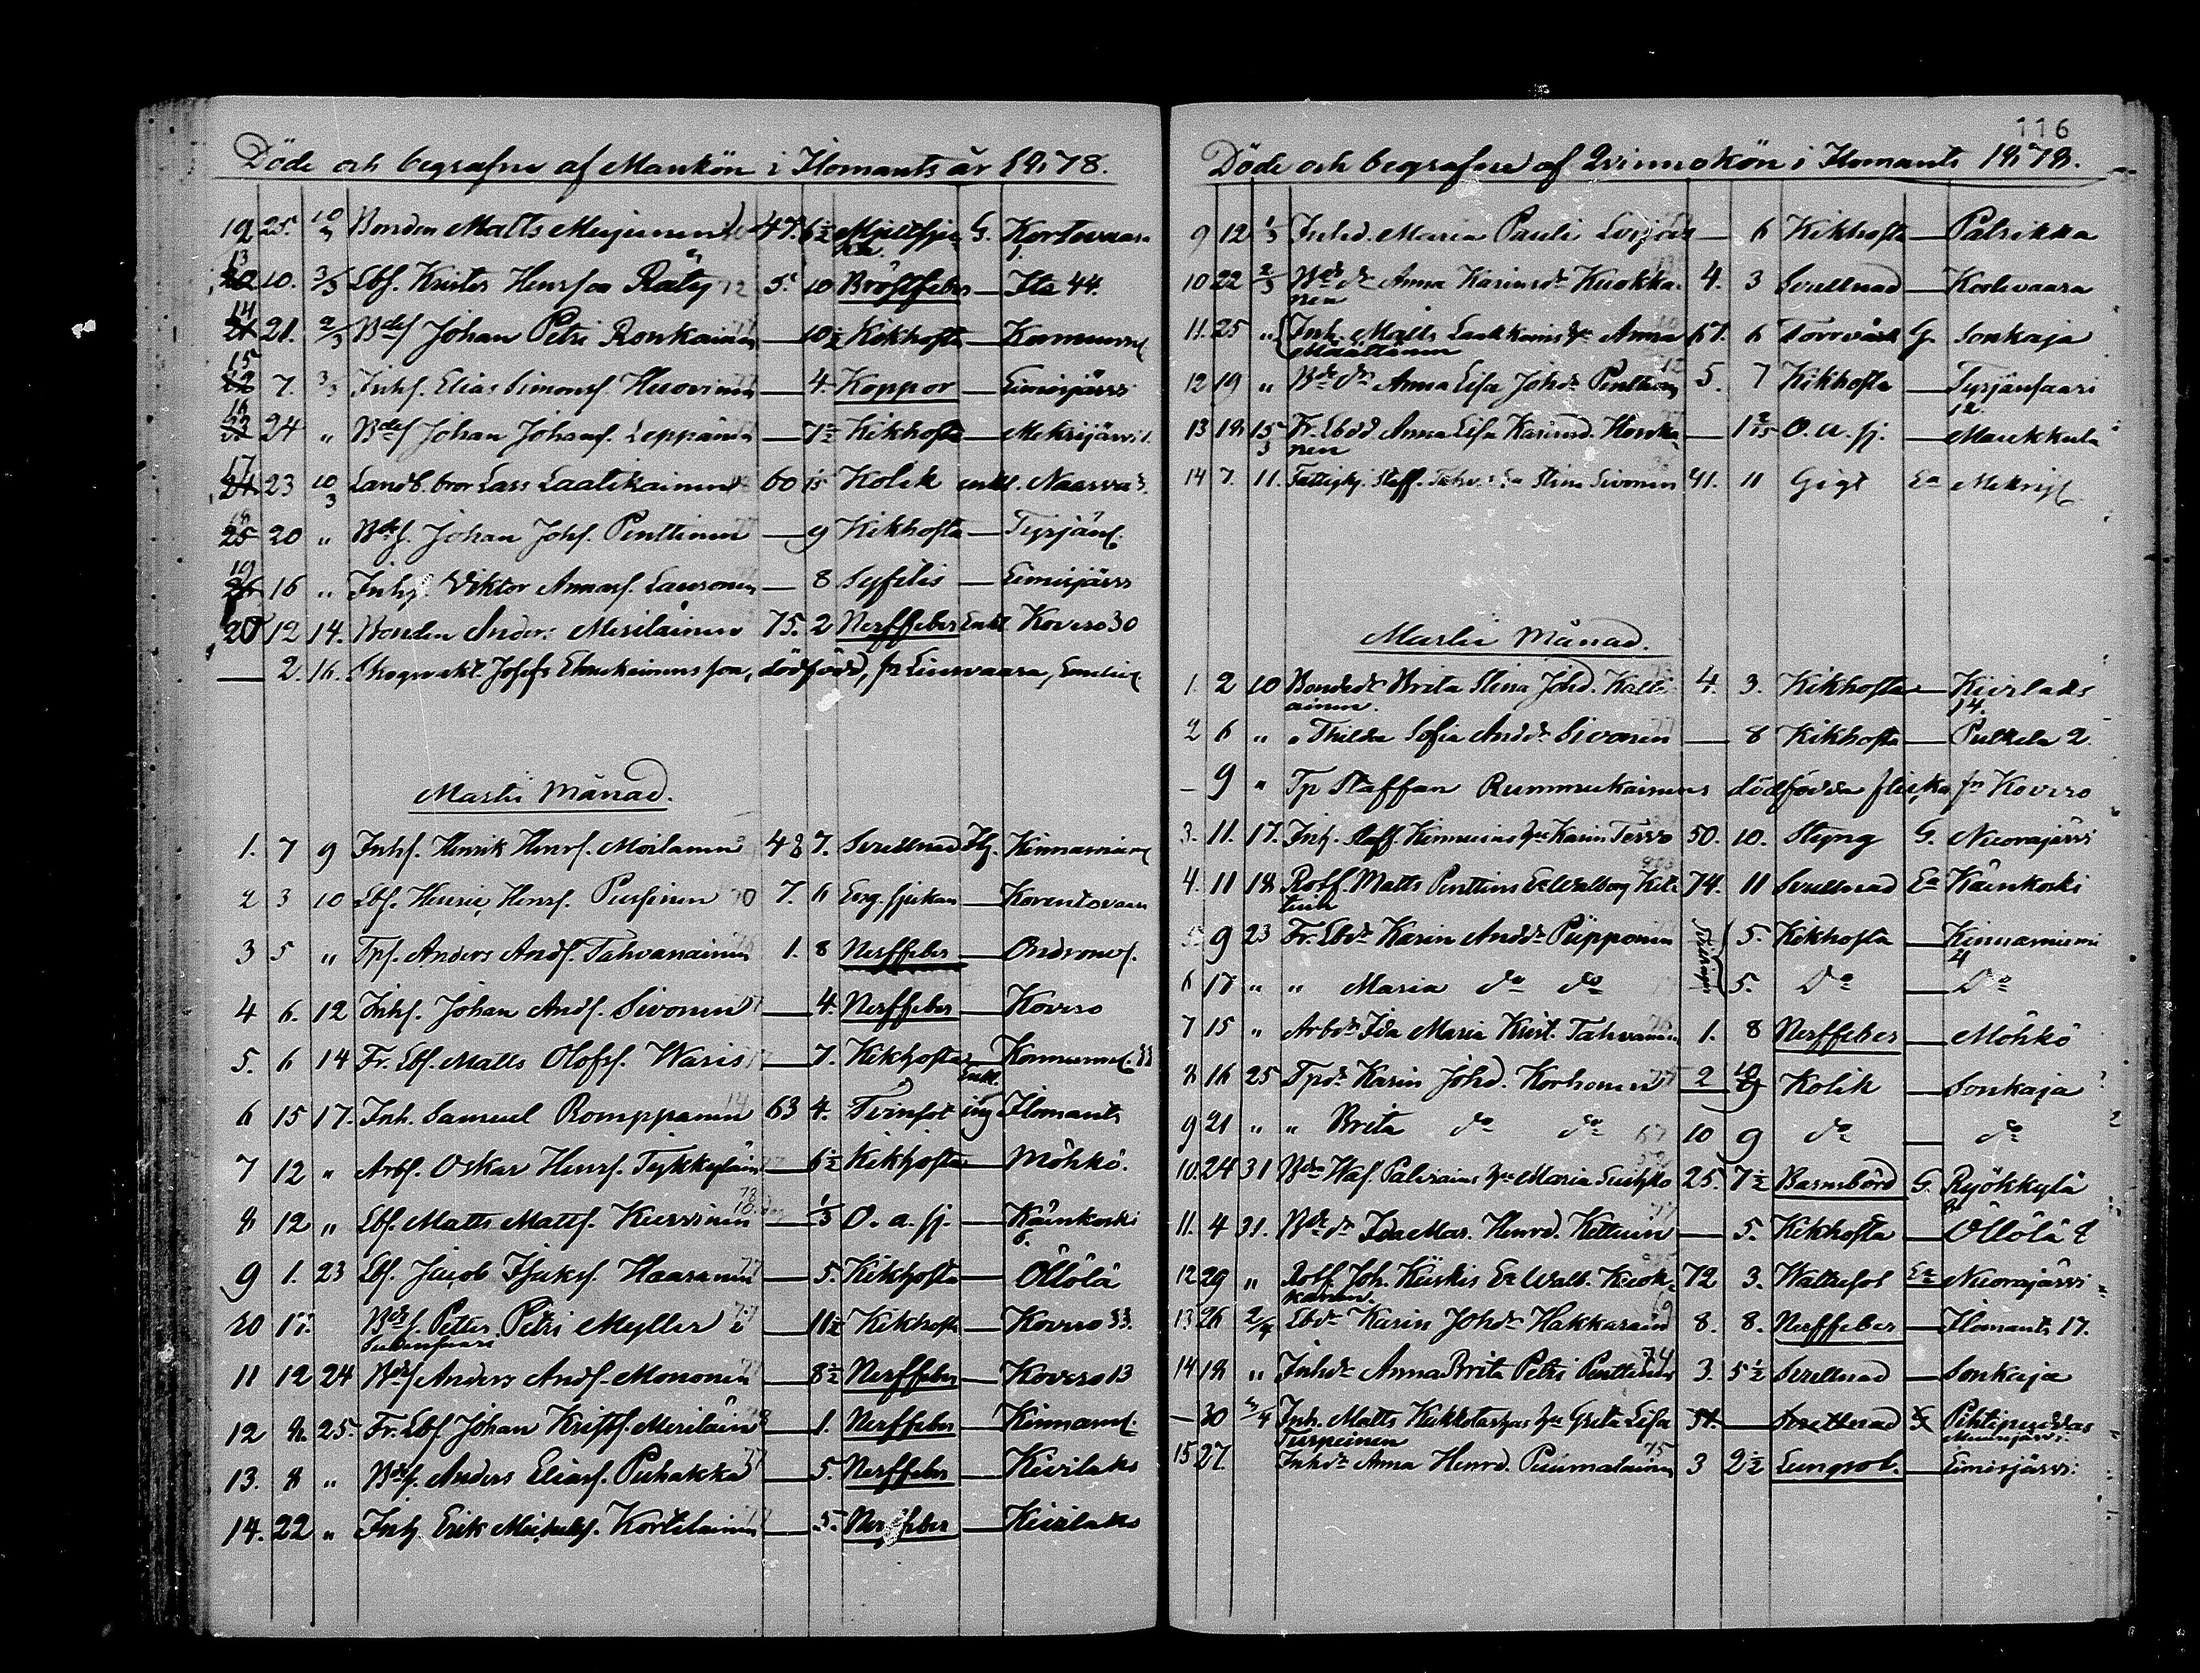 Döde och begrafne af Mankön i Ilomants år 1878.
12 25. 10/3 Bonden Matts Mujunen 47. 6½ Mjeltsju- G. Kortevaara
ka. 1.
13 10. 3/3 Lbf. Krister Henrson Räty 72 5. 10 Bröstfeber — Ilo 44.
14 21. 2/3 Bdes Johan Petri Ronkainen 77 — 10½ Kikhosta — Korvunni
15 7. 3/3 Inhs. Elias Simonss. Huovinen 77 — 4. Koppor — Eimisjärvi
16 24 " Bdes Johan Johans. Leppänen — 7½ Kikhosta — Mekrijärvi 1.
17 23 10/3 Landb. bror Lars Laatikainen 60 15 Kolik enkl. Naarva 3.
18 20 " Bdes. Johan Johs. Penttinen 77 — 9 Kikhosta — Tyrjäns.
19 16 " Inhs. Viktor Annas. Lauronen — 8 Syfilis — Eimisjärvi
20 12 14. Bonden Anders Meriläinen 75. 2 Nerffeber Enkl. Kovero 30
— 2. 16. Skogvakt. Josefs son, dödfödd, fr Liusvaara,
Martii Månad.
1. 7 9 Inhs. Henrik Henrs. Moilanen 48 7. Svullnad Hg. Kinnarniemi
2 3 10 Lbf. Henric Henrs. Pusinen 70 7. 6 Eng. sjukan — Korentovaara
3 5 " Tps. Anders Ands. Tahvanainen 76 1. 8 Nerffeber — Ondronv.
4 6. 12 Inhs. Johan Ands. Sivonen — 4. Nerffeber — Kovero
5. 6 14 Fr. Lbf. Matts Olofs. Waris — 7. Kikhosta — Korvunni 33
Enkl.
6 15 17. Inh. Samuel Romppanen 14 63 4. Tvinsot ing Ilomants
7 12 " Arbs. Oskar Henrs. Tykkyläin — 6½ Kikhosta — Möhkö.
8 12 " Lbf. Matts Matts. Kurvinen 78 — 1/3 O. a. sj. — Känkoski
6.
9 1. 23 Lbf. Jacob Isaks. Haaranen 77 — 5. Kikhosta — Öllölä
10 17. Bdes. Petter Petri Myller 77 — 11½ Kikhosta — Kovero 33.
11 12 24 Bdes Anders Ands. Mononen 77 — 8½ Nerffeber — Kovero 13
12 8. 25. Fr. Lbf. Johan Krists. Meriläin 78 — 1. Nerffeber — Kinnarn.
13. 8 " Bdes. Anders Elias. Puhakka 77 — 5. Nerffeber — Kivilaks
14. 22 " Inhs. Erik Michels. Kortelainen 77 — 5. Nerffeber — Kivilaks
116
Döde och begrafne af Qvinnokön i Ilomants 1878.
9 12 1/3 Inhsd. Maria Pauli — 6 Kikhosta — Patrikka
10 22 2/3 Bdedr Anna Karinsdr Kuokka- 4. 3 Svullnad — Kortevaara
nen
11. 25 " Inh. Matts Laakkoins hu Anna 67. 6 Torrvärk G. Sonkaja
Määttänen
12 19 " Bdedr Anna Lisa Johdr Penttinen 5. 7 Kikhosta — Tyrjänsaari
12.
13 18 15/3 Fr. Lbdr Anna Lisa Karinsd. Hirvo- — 1 2/15 O. a. sj. — Maukkula
nen
14 7. 11. Fattighj. Staff. Tahv. Ea Stina Sivonen 41. 11 Gigt Ea Mekrij.
Martii Månad.
1. 2 10 Bondedr Brita Stina Johd. Kalli- 4. 3. Kikhosta — Kivilaks
ainen. 14.
2 6 " " Thilda Sofia Anddr Sivonen 77 — 8 Kikhosta — Putkela 2.
— 9 " Tp Staffan Rummukainens dödfödda flicka fr Kovero
3. 11. 17. Inh. Staff. Kinnuins hu Karin Tervo 50. 10. Styng G. Nuorajärvi
4. 11 18 Rotf. Matts Penttins Ea Walborg Ket- 74. 11 Svullnad Ea Känkoski
tuin
5. 9 23 Fr. Lbdr Karin Anddr Piipponen Tvillingar 5. Kikhosta — Kinnarniemi
4
6 17 " " Maria do do 5. Do — Do
7 15 " Arbdr Ida Maria Krist. Tahvanain 76 1. 8 Nerffeber — Möhkö
8 16 25 Tpdr Karin Johd. Korhonen 2 9 Kolik — Sonkaja
9 21 " " Brita do do 67 10 9 do — do
10. 24 31 Bdn Haf. Palvians hu Maria 25. 7½ Barnsbörd G. Ryökkylä
11. 4 31. Bdedr Ida Mar. Henrd. Kettuin 77 — 5. Kikhosta — Öllölä 8
12 29 " Rotf. Joh. Kiiskis Ea Walb. Kuok- 72 3. Wattusot Ea Nuorajärvi
kanen.
13 26 2/4 Lbdr Karin Johdr Hakkarain 69 8. 8. Nerffeber — Ilomants 17.
14 18 " Inhdr Anna Brita Petri Penttinen 74 3. 5½ Svullnad — Sonkaja
— 30 3/4 Inh. Matts hu Greta Lisa 51. — Svullnad G
Turpeinen
15 27. Inhdr Anna Henrd. Puumalainen 75 3 2½ Lungsot. — Eimisjärvi.